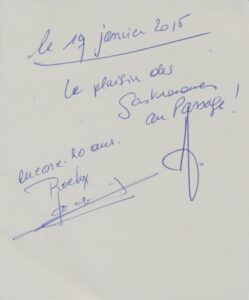 le 19 janvier 2015
Le plaisir des
Gastronomes
au Passage !
encore 20 ans.